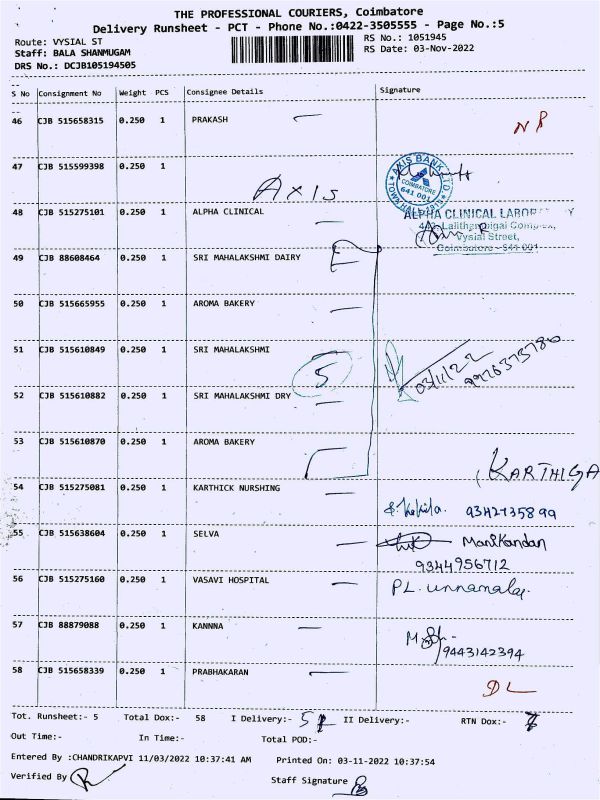 THE PROFESSIONAL COURIERS, Coimbatore
Delivery Runsheet - PCT - Phone No.:0422-3505555 - Page No.:5
Route: VYSIAL ST
RS No.: 1051945
Staff: BALA SHANMUGAM
RS Date: 03-Nov-2022
DRS No.: DCJB105194505
S No Consignment No Weight PCS Consignee Details Signature
46 CJB 515658315 0.250 1 PRAKASH NP
47 CJB 515599398 0.250 1 AXIS
AXIS BANK LTD
COIMBATORE
641 001
TOWN HALL
48 CJB 515275101 0.250 1 ALPHA CLINICAL
ALPHA CLINICAL
Vysial Street,
Coimbatore - 641 001
49 CJB 88608464 0.250 1 SRI MAHALAKSHMI DAIRY
50 CJB 515665955 0.250 1 AROMA BAKERY
51 CJB 515610849 0.250 1 SRI MAHALAKSHMI 5 03/11/22
52 CJB 515610882 0.250 1 SRI MAHALAKSHMI DRY
53 CJB 515610870 0.250 1 AROMA BAKERY
KARTHIGA
54 CJB 515275081 0.250 1 KARTHICK NURSHING
S. Kokila. 9342735899
55 CJB 515638604 0.250 1 SELVA Manikandan
9344956712
56 CJB 515275160 0.250 1 VASAVI HOSPITAL PL.
57 CJB 88879088 0.250 1 KANNNA
9443142394
58 CJB 515658339 0.250 1 PRABHAKARAN DL
Tot. Runsheet:- 5 Total Dox:- 58 I Delivery:- II Delivery:- RTN Dox:-
Out Time:- In Time:- Total POD:-
Entered By :CHANDRIKAPVI 11/03/2022 10:37:41 AM Printed On: 03-11-2022 10:37:54
Verified By Staff Signature